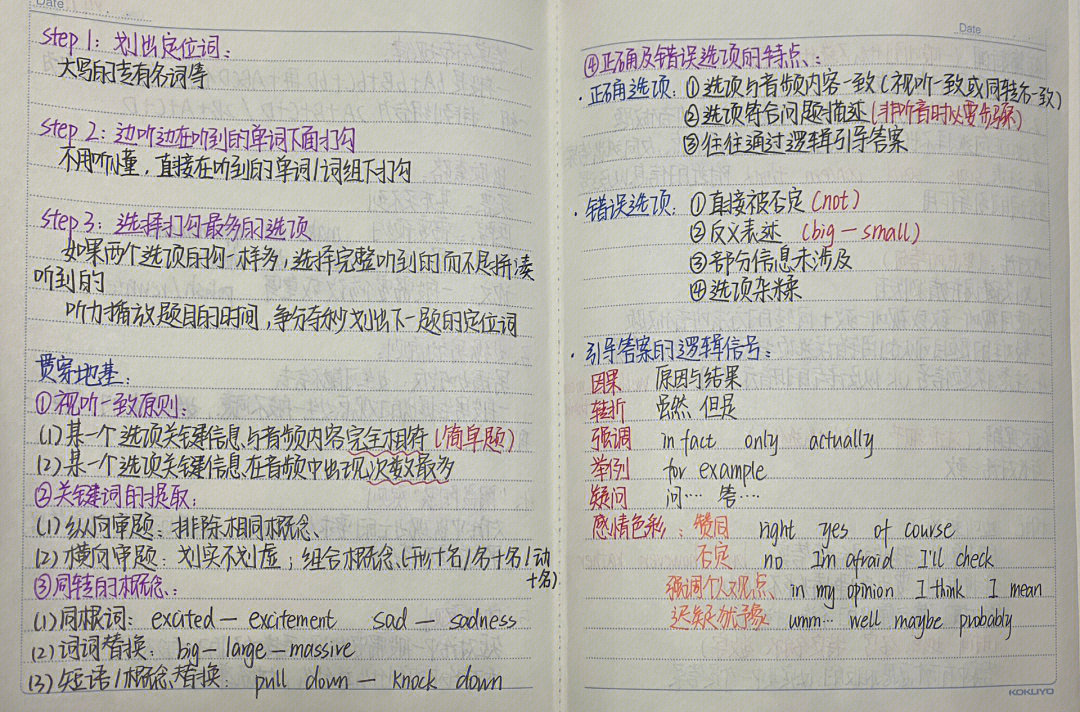 Date
step 1：划出定位词：
大写的专有名词等
step 2：边听边在听到的单词下面打勾
不用听懂，直接在听到的单词/词组下打勾
step 3：选择打勾最多的选项
如果两个选项的勾一样多，选择完整听到的而不是拼凑
听到的
听力播放题目的时间，争分夺秒划出下一题的定位词
贯穿地基：
①视听一致原则：
(1)某一个选项关键信息与音频内容完全相符(简单题)
(2)某一个选项关键信息在音频中出现次数最多
②关键词的提取：
(1)纵向审题：排除相同概念
(2)横向审题：划实不划虚；组合概念(形+名/名+名/动
+名)
③同转的概念：
(1)同根词：excited — excitement sad — sadness
(2)词词替换：big — large — massive
(3)短语/概念替换：pull down — knock down
Date
④正确及错误选项的特点：
·正确选项：①选项与音频内容一致(视听一致或同转后一致)
②选项符合问题描述(非听音时必要步骤)
③往往通过逻辑引导答案
·错误选项：①直接被否定(not)
②反义表述 (big — small)
③部分信息未涉及
④选项杂糅
·引导答案的逻辑信号：
因果 原因与结果
转折 虽然 但是
强调 in fact only actually
举例 for example
疑问 问… 答…
感情色彩：赞同 right yes of course
否定 no I'm afraid I'll check
强调个人观点 in my opinion I think I mean
迟疑犹豫 umm… well maybe probably
KOKUYO